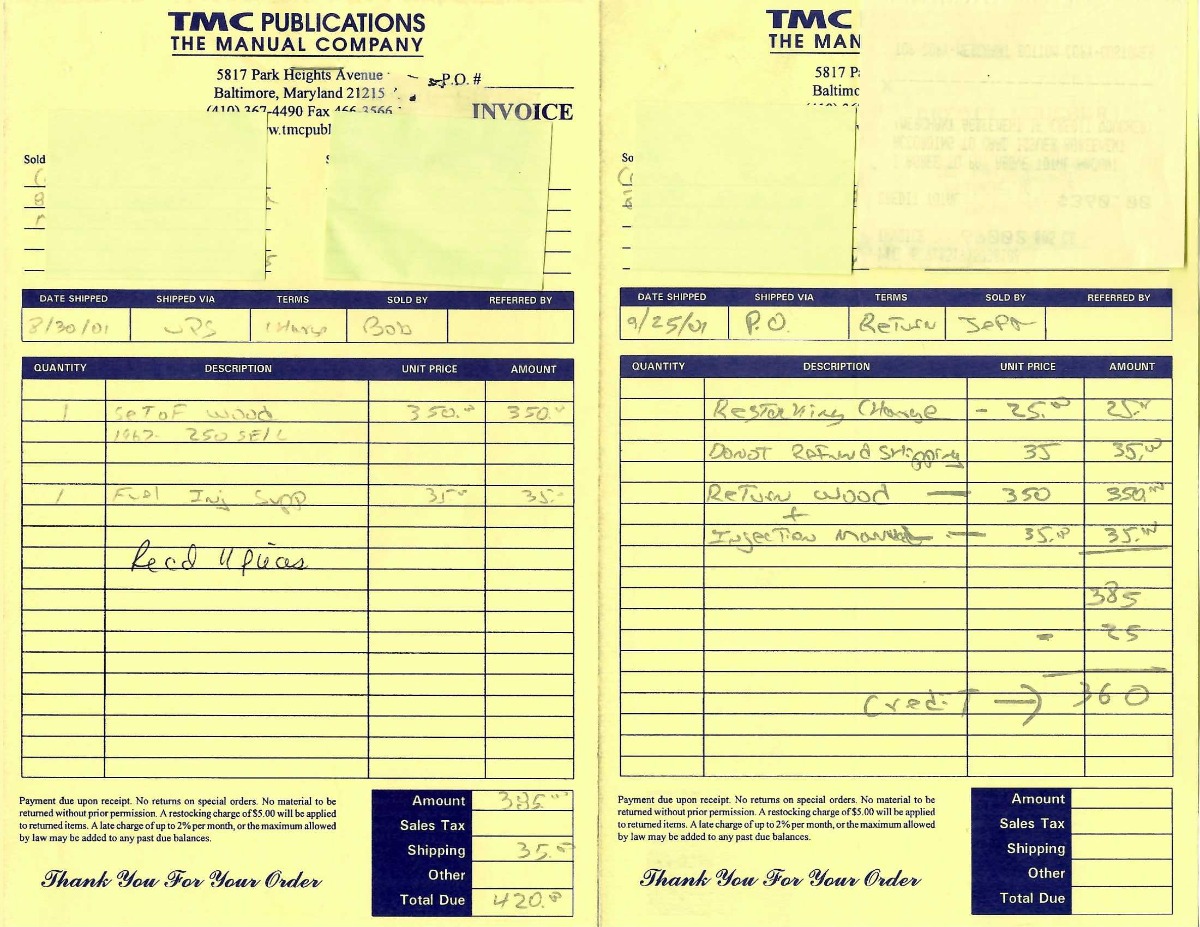 TMC PUBLICATIONS
THE MANUAL COMPANY
5817 Park Heights Avenue
P.O. #
Baltimore, Maryland 21215
(410) 367-4490 Fax 466-3566
INVOICE
w.tmcpubl
Sold
DATE SHIPPED SHIPPED VIA TERMS SOLD BY REFERRED BY
8/30/01 UPS Charge Bob
QUANTITY DESCRIPTION UNIT PRICE AMOUNT
1 Set of wood 350.00 350.00
1967 250 SE/C
1 Fuel Inj Supp 35.00 35.00
Recd 11 pieces
Payment due upon receipt. No returns on special orders. No material to be
returned without prior permission. A restocking charge of $5.00 will be applied
to returned items. A late charge of up to 2% per month, or the maximum allowed
by law may be added to any past due balances.
Thank You For Your Order
Amount 385.00
Sales Tax
Shipping 35.00
Other
Total Due 420.00
TMC
THE MAN
5817 P
Baltimo
So
DATE SHIPPED SHIPPED VIA TERMS SOLD BY REFERRED BY
9/25/01 P.O. Return Jeff
QUANTITY DESCRIPTION UNIT PRICE AMOUNT
Restocking Charge - 25.00 25.00
Do not Refund Shipping 35 35.00
Return wood — 350 350.00
+
Injection Manual — 35.00 35.00
385
- 25
Credit → 360
Payment due upon receipt. No returns on special orders. No material to be
returned without prior permission. A restocking charge of $5.00 will be applied
to returned items. A late charge of up to 2% per month, or the maximum allowed
by law may be added to any past due balances.
Thank You For Your Order
Amount
Sales Tax
Shipping
Other
Total Due